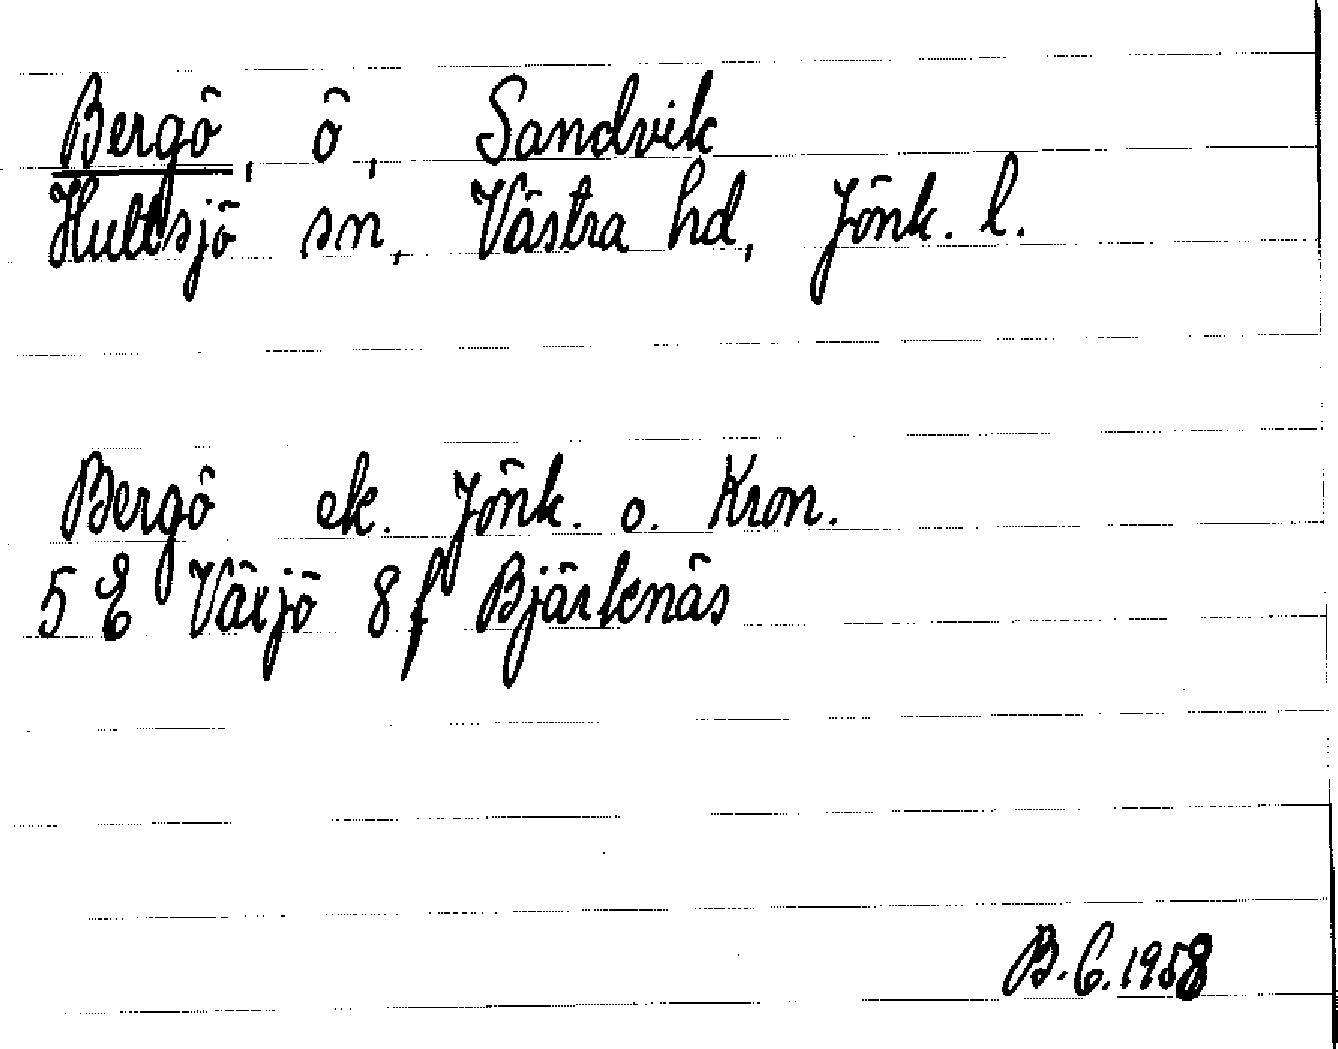 Bergö, ö, Sandvik
Hultsjö sn, Västra hd, Jönk. l.
Bergö ek. Jönk. o. Kron.
5 E Växjö 8 f Bjärknäs
B.C. 1958